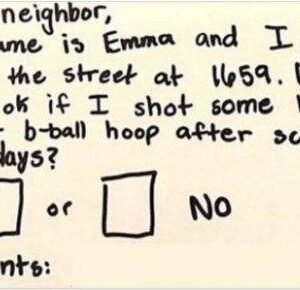 neighbor,
ame is Emma and I
the street at 1659.
ok if I shot some
b-ball hoop after sc
days?
or NO
nts: